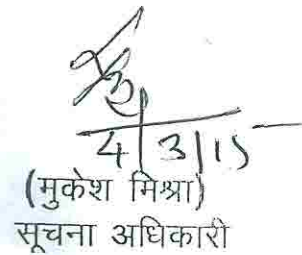 4/3/15
(मुकेश मिश्रा)
सूचना अधिकारी